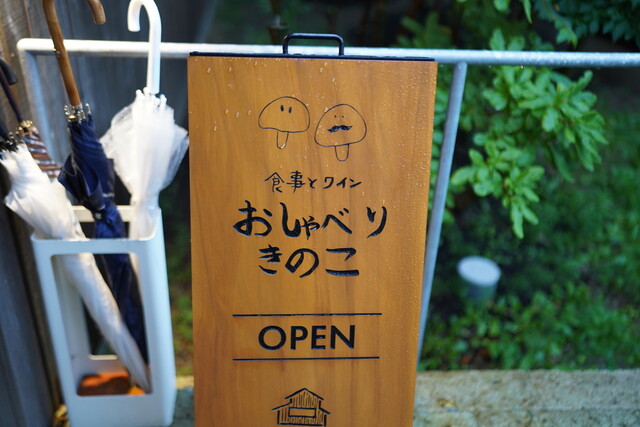 食事とワイン
おしゃべり
きのこ
OPEN